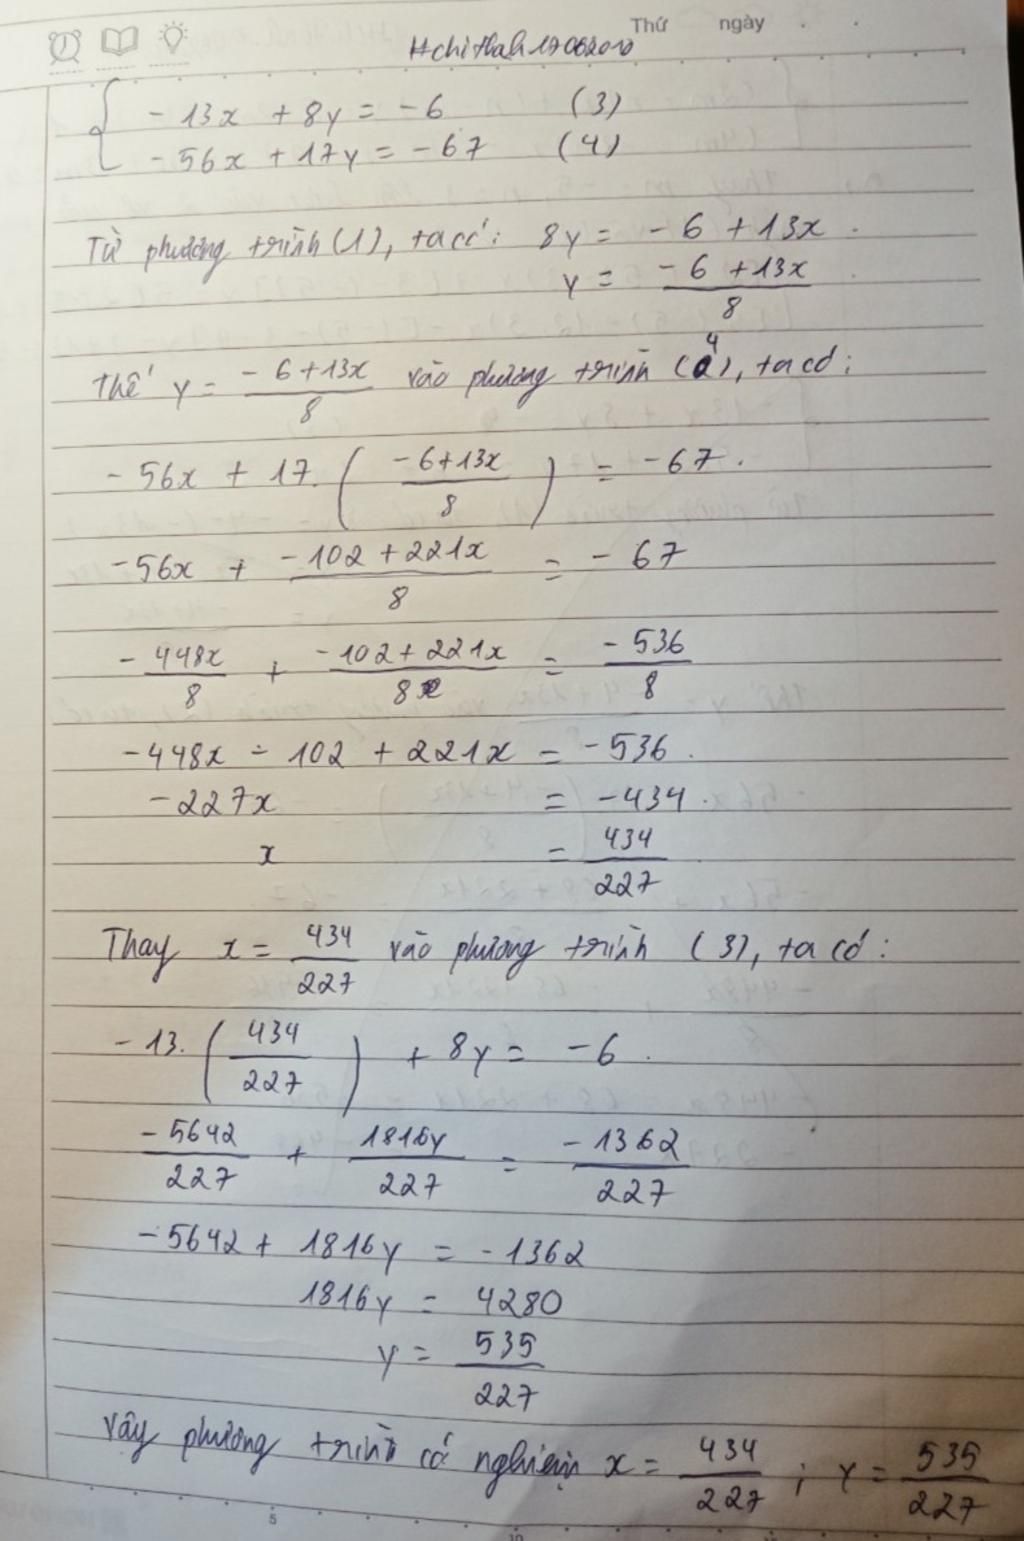 Thứ ngày
#chithah17062010
-13x + 8y = -6 (3)
-56x + 17y = -67 (4)
Từ phương trình (1), ta có: 8y = -6 + 13x.
y = (-6 + 13x)/8
Thế y = (-6+13x)/8 vào phương trình (4), ta có:
-56x + 17.((-6+13x)/8) = -67.
-56x + (-102 + 221x)/8 = -67
-448x/8 + (-102 + 221x)/8 = -536/8
-448x - 102 + 221x = -536.
-227x = -434.
x = 434/227
Thay x = 434/227 vào phương trình (3), ta có:
-13.(434/227) + 8y = -6.
-5642/227 + 1816y/227 = -1362/227
-5642 + 1816y = -1362
1816y = 4280
y = 535/227
Vậy phương trình có nghiệm x = 434/227 ; y = 535/227
5
10